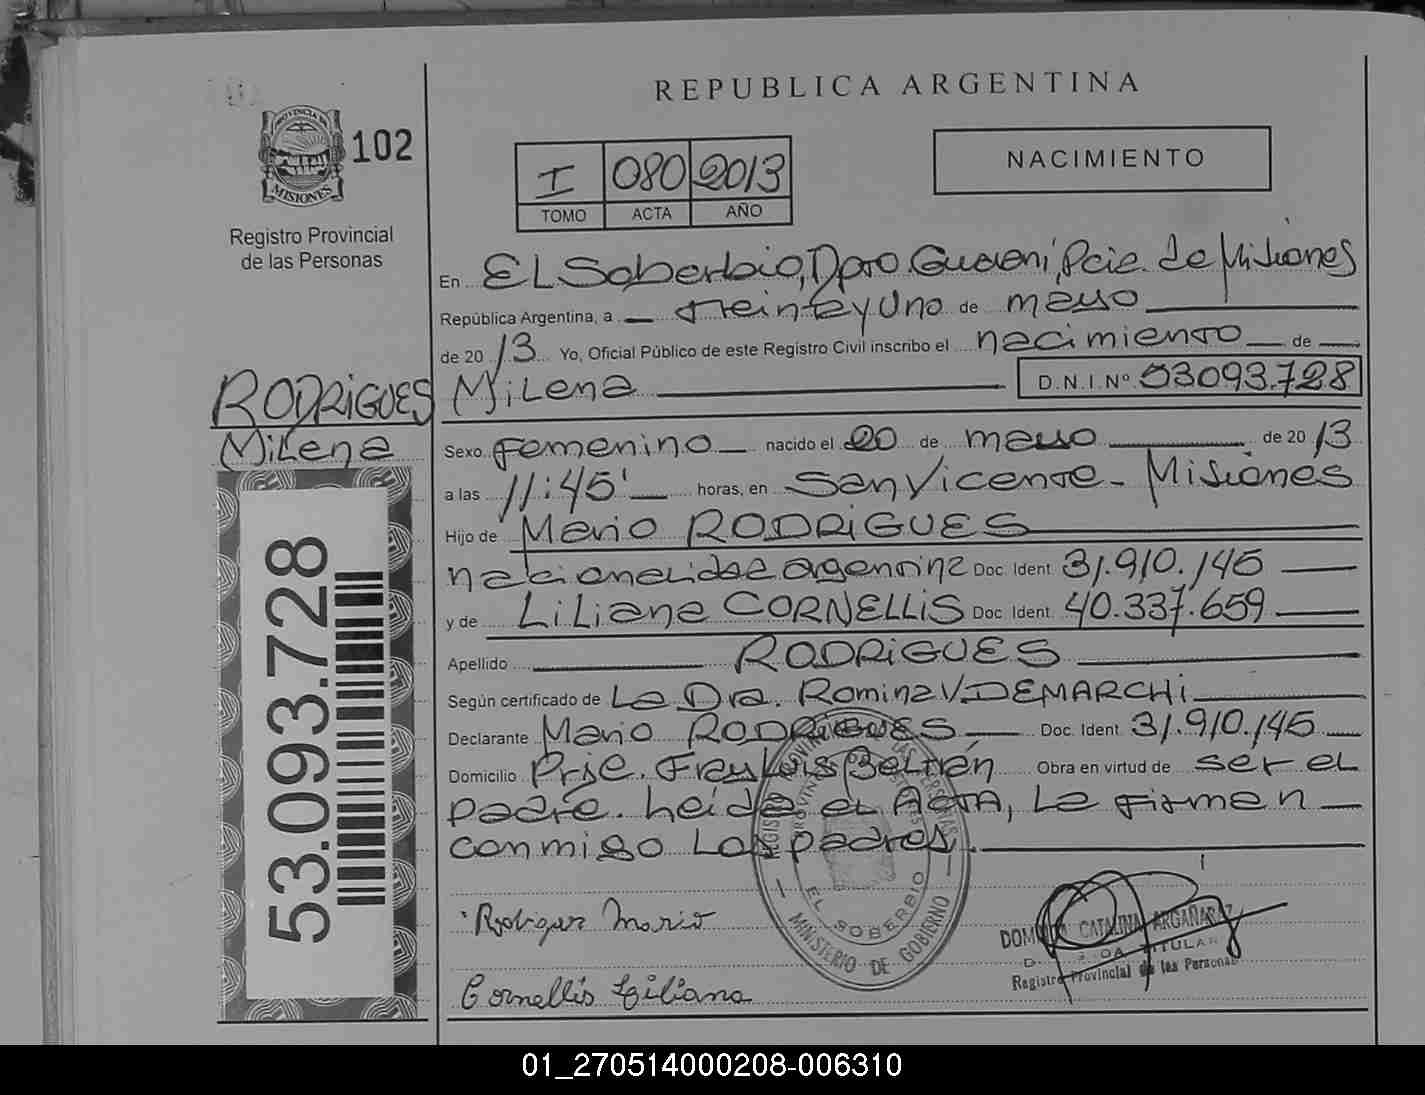 REPUBLICA ARGENTINA
PROVINCIA DE
MISIONES
102
Registro Provincial
de las Personas
I 080 2013
TOMO ACTA AÑO
NACIMIENTO
En El Soberbio, Dpto. Guaraní, Pcia. de Misiones
República Argentina, a treinta y uno de mayo
de 2013 Yo, Oficial Público de este Registro Civil inscribo el nacimiento de
RODRIGUES Milena D.N.I. Nº 53093.728
Milena
Sexo femenino nacido el 20 de mayo de 2013
a las 11:45' horas, en San Vicente - Misiones
Hijo de Mario RODRIGUES
nacionalidad argentina Doc. Ident. 31.910.145
y de Liliana CORNELLIS Doc. Ident. 40.337.659
Apellido RODRIGUES
Según certificado de La Dra. Romina V. DEMARCHI
Declarante Mario RODRIGUES Doc. Ident. 31.910.145
Domicilio Prje. Fray Luis Beltrán Obra en virtud de ser el
padre. Leída el Acta, la firman
conmigo los padres.
53.093.728
EL SOBERBIO
MINISTERIO DE GOBIERNO
Rodrigues Mario
CATALINA ARGAÑARAZ
TITULAR
Registro Provincial de las Personas
Cornellis Liliana
01_270514000208-006310